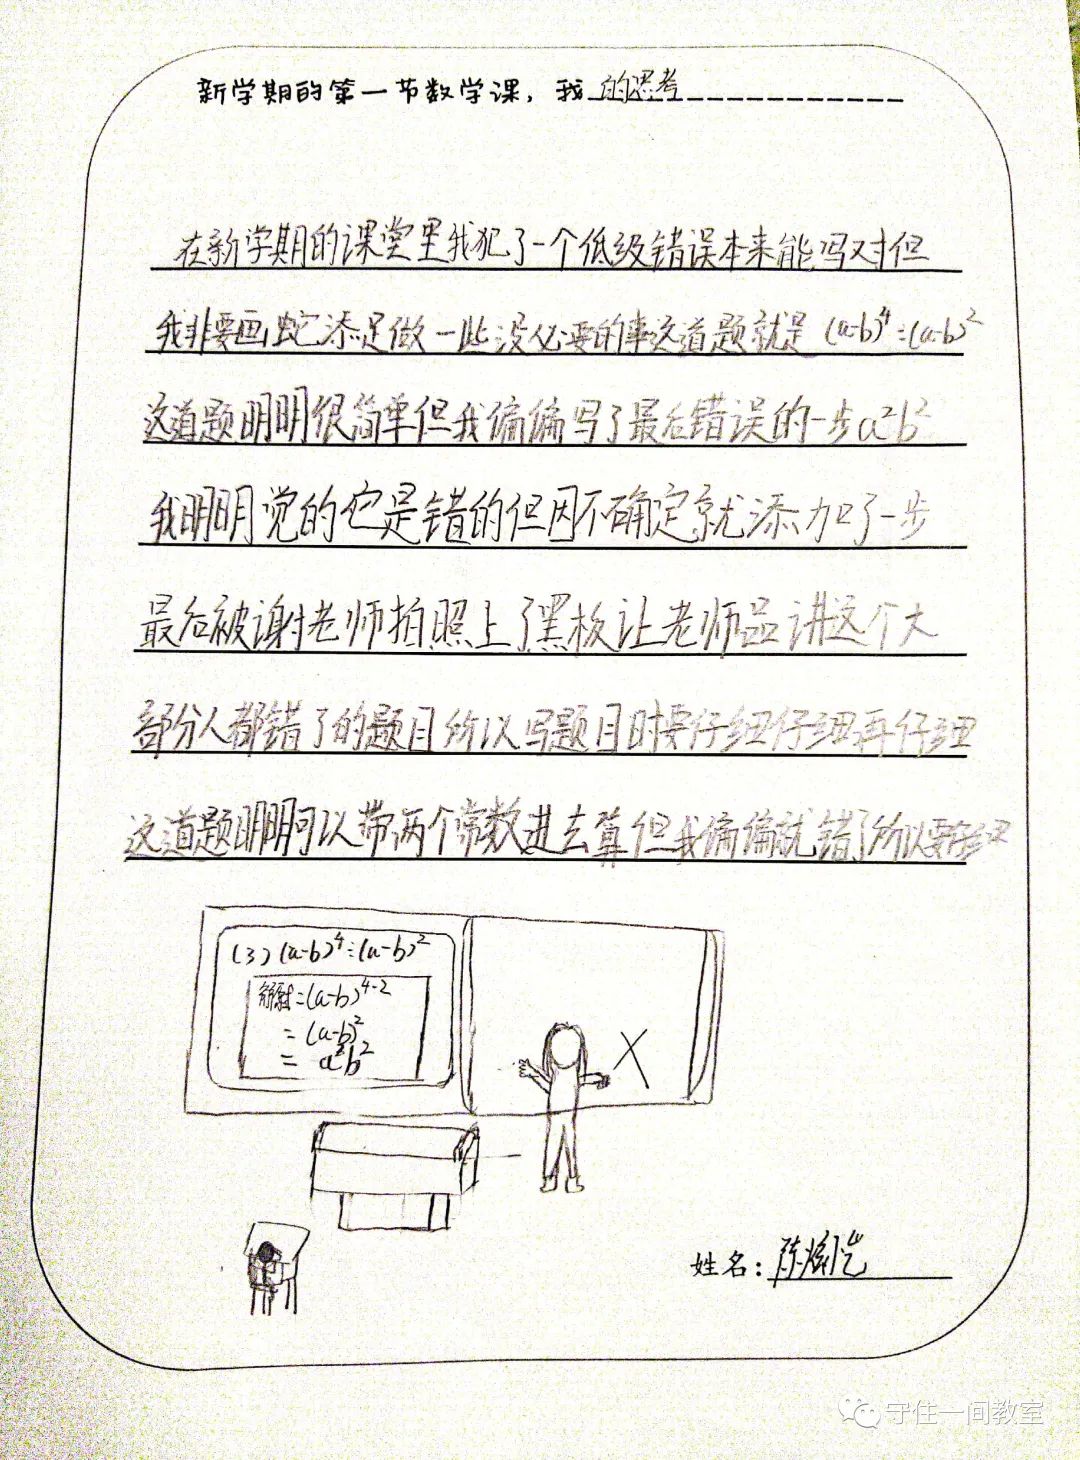 新学期的第一节数学课，我的思考
在新学期的课堂里我犯了一个低级错误本来能写对但
我非要画蛇添足做一些没必要的事这道题就是(a-b)⁴÷(a-b)²
这道题明明很简单但我偏偏写了最后错误的一步a²b²
我明明觉的它是错的但因不确定就添加了一步
最后被谢老师拍照上了黑板让老师品讲这个大
部分人都错了的题目所以写题目时要仔细仔细再仔细
这道题明明可以带两个常数进去算但我偏偏就错了所以要
(3)(a-b)⁴÷(a-b)²
解原式=(a-b)⁴⁻²
=(a-b)²
=a²b²
X
姓名：陈
守住一间教室